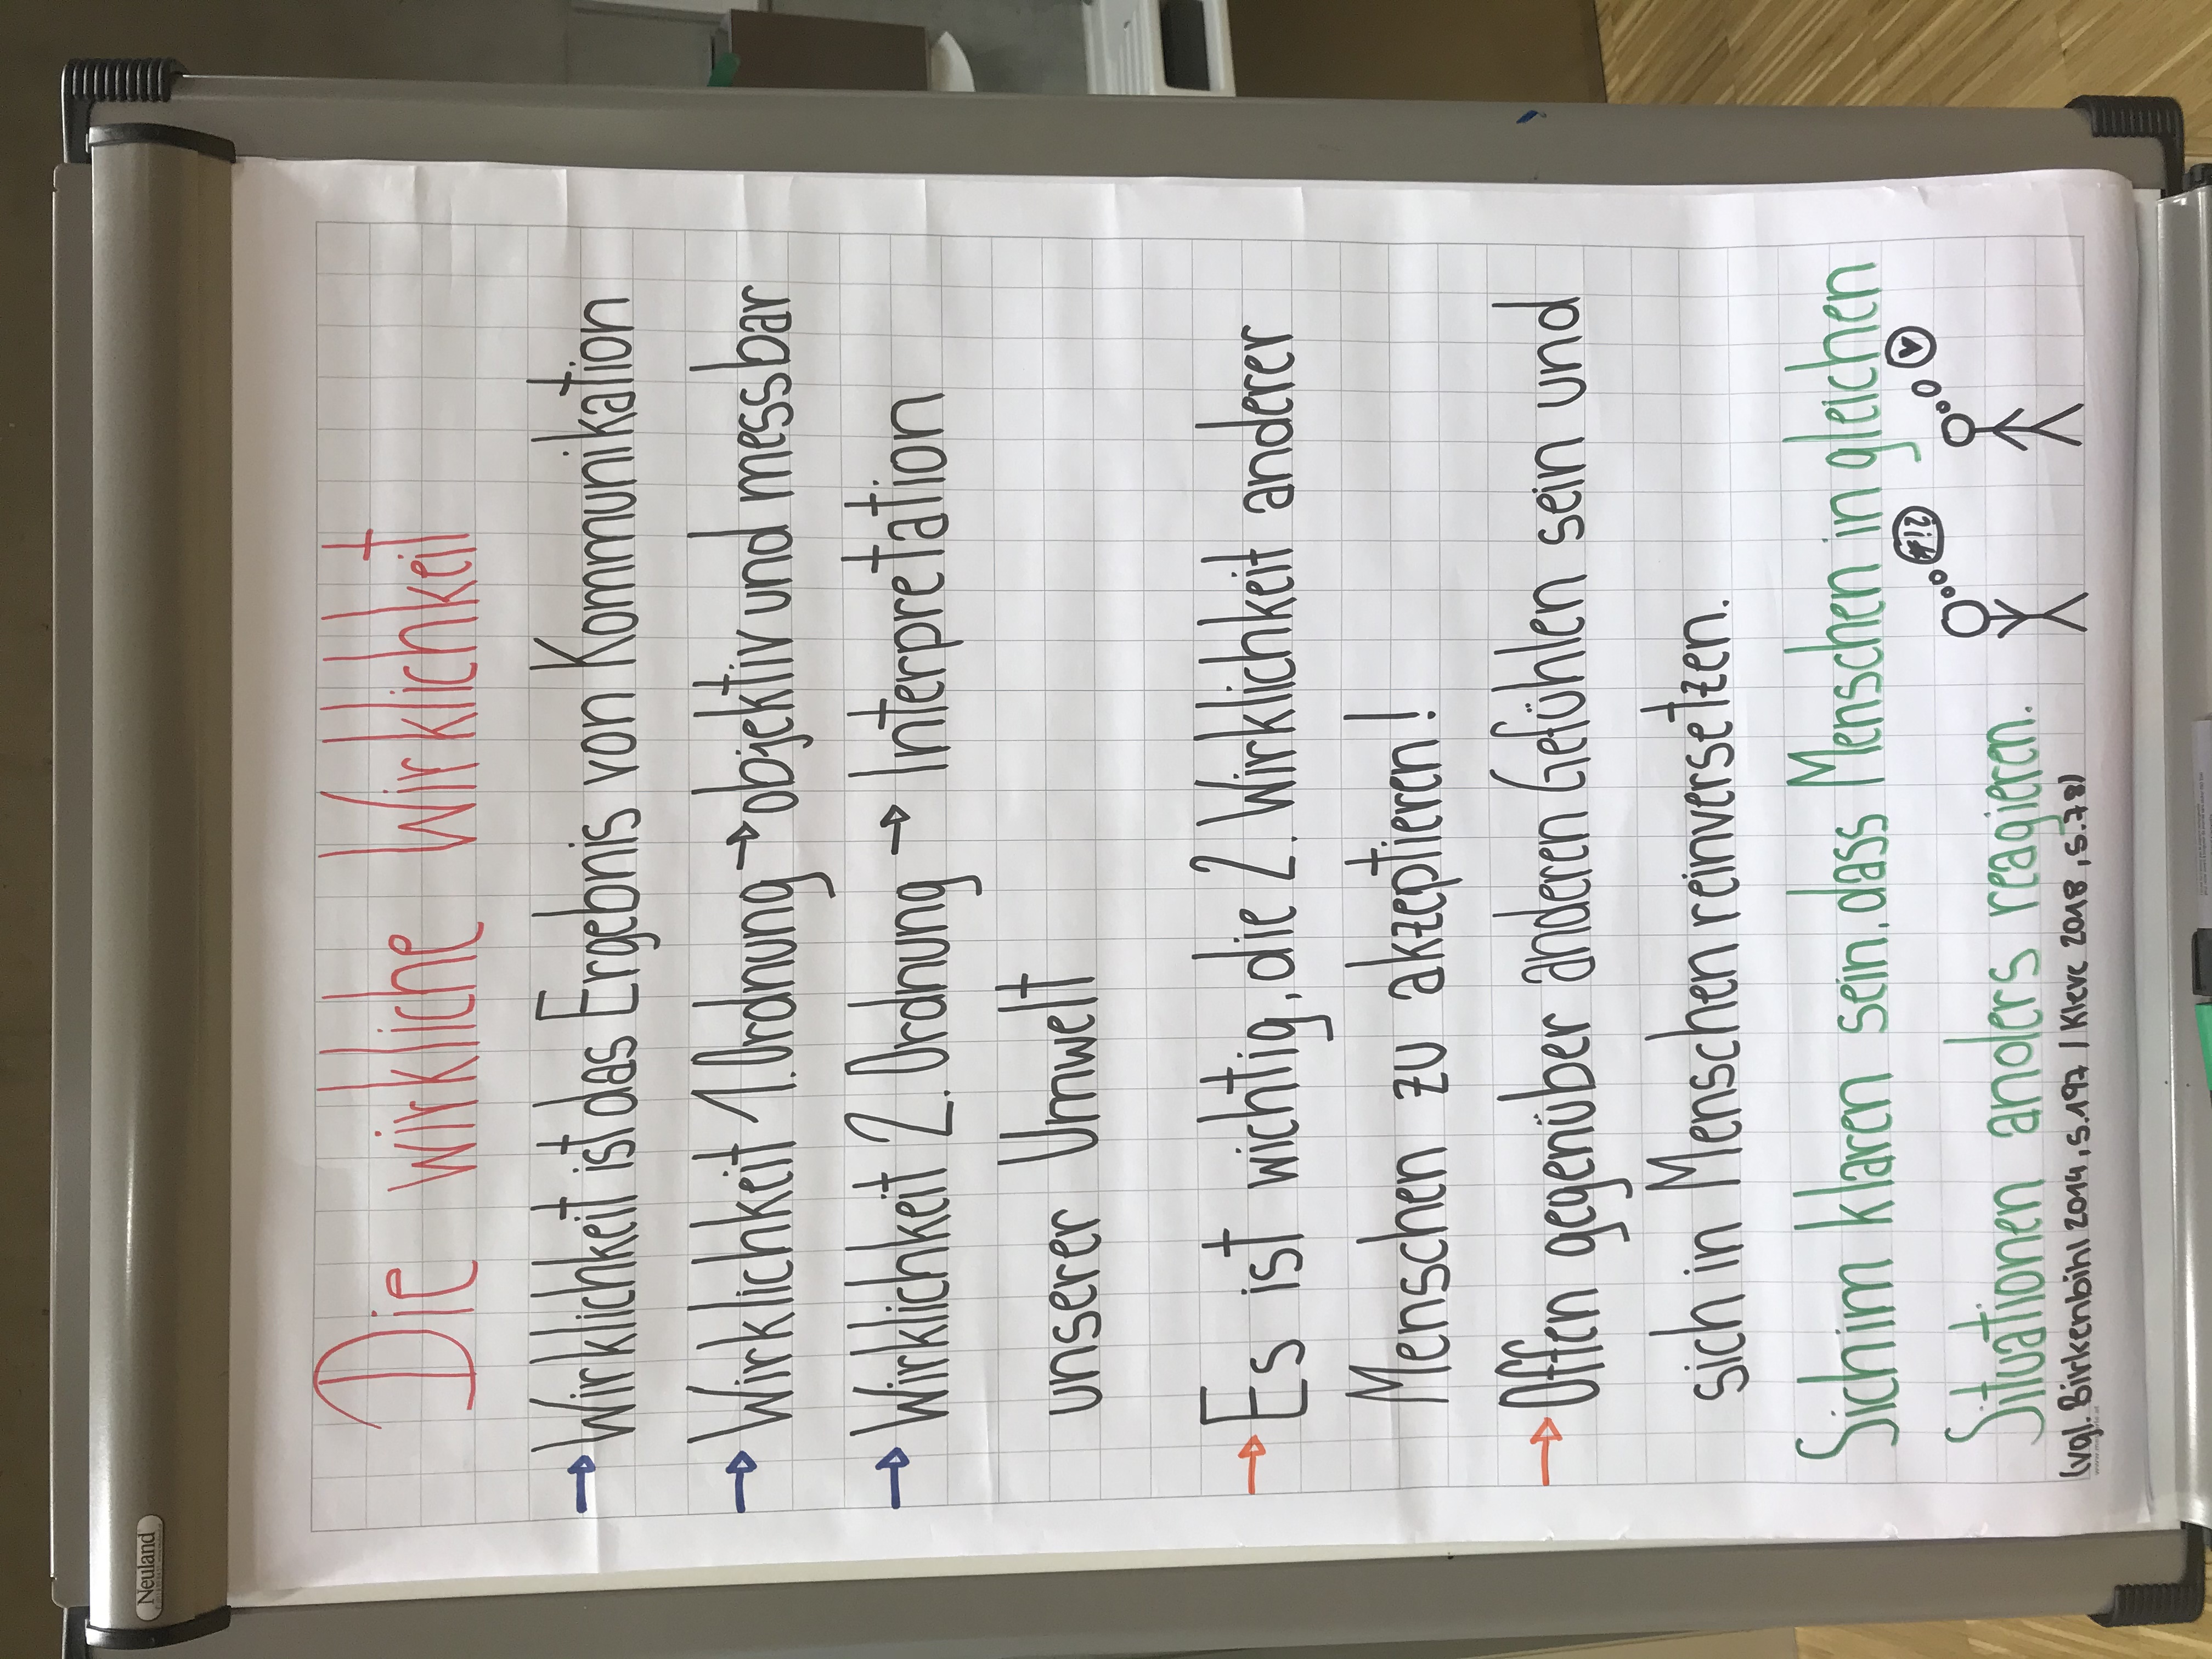 Die wirkliche Wirklichkeit
→ Wirklichkeit ist das Ergebnis von Kommunikation
→ Wirklichkeit 1. Ordnung → objektiv und messbar
→ Wirklichkeit 2. Ordnung → Interpretation
unserer Umwelt
→ Es ist wichtig, die 2. Wirklichkeit anderer
Menschen zu akzeptieren!
→ Offen gegenüber anderen Gefühlen sein und
sich in Menschen reinversetzen.
Sich im klaren sein, dass Menschen in gleichen
Situationen anders reagieren.
(vgl. Birkenbihl 2014, S.197 / Kleve 2018, S.78)
Neuland